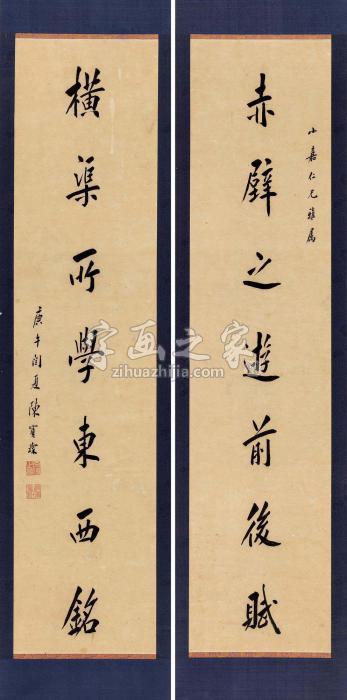 小嘉仁兄雅属
赤壁之遊前後賦
橫渠所學東西銘
庚午閏夏陳寶琛
字画之家
zihuazhijia.com